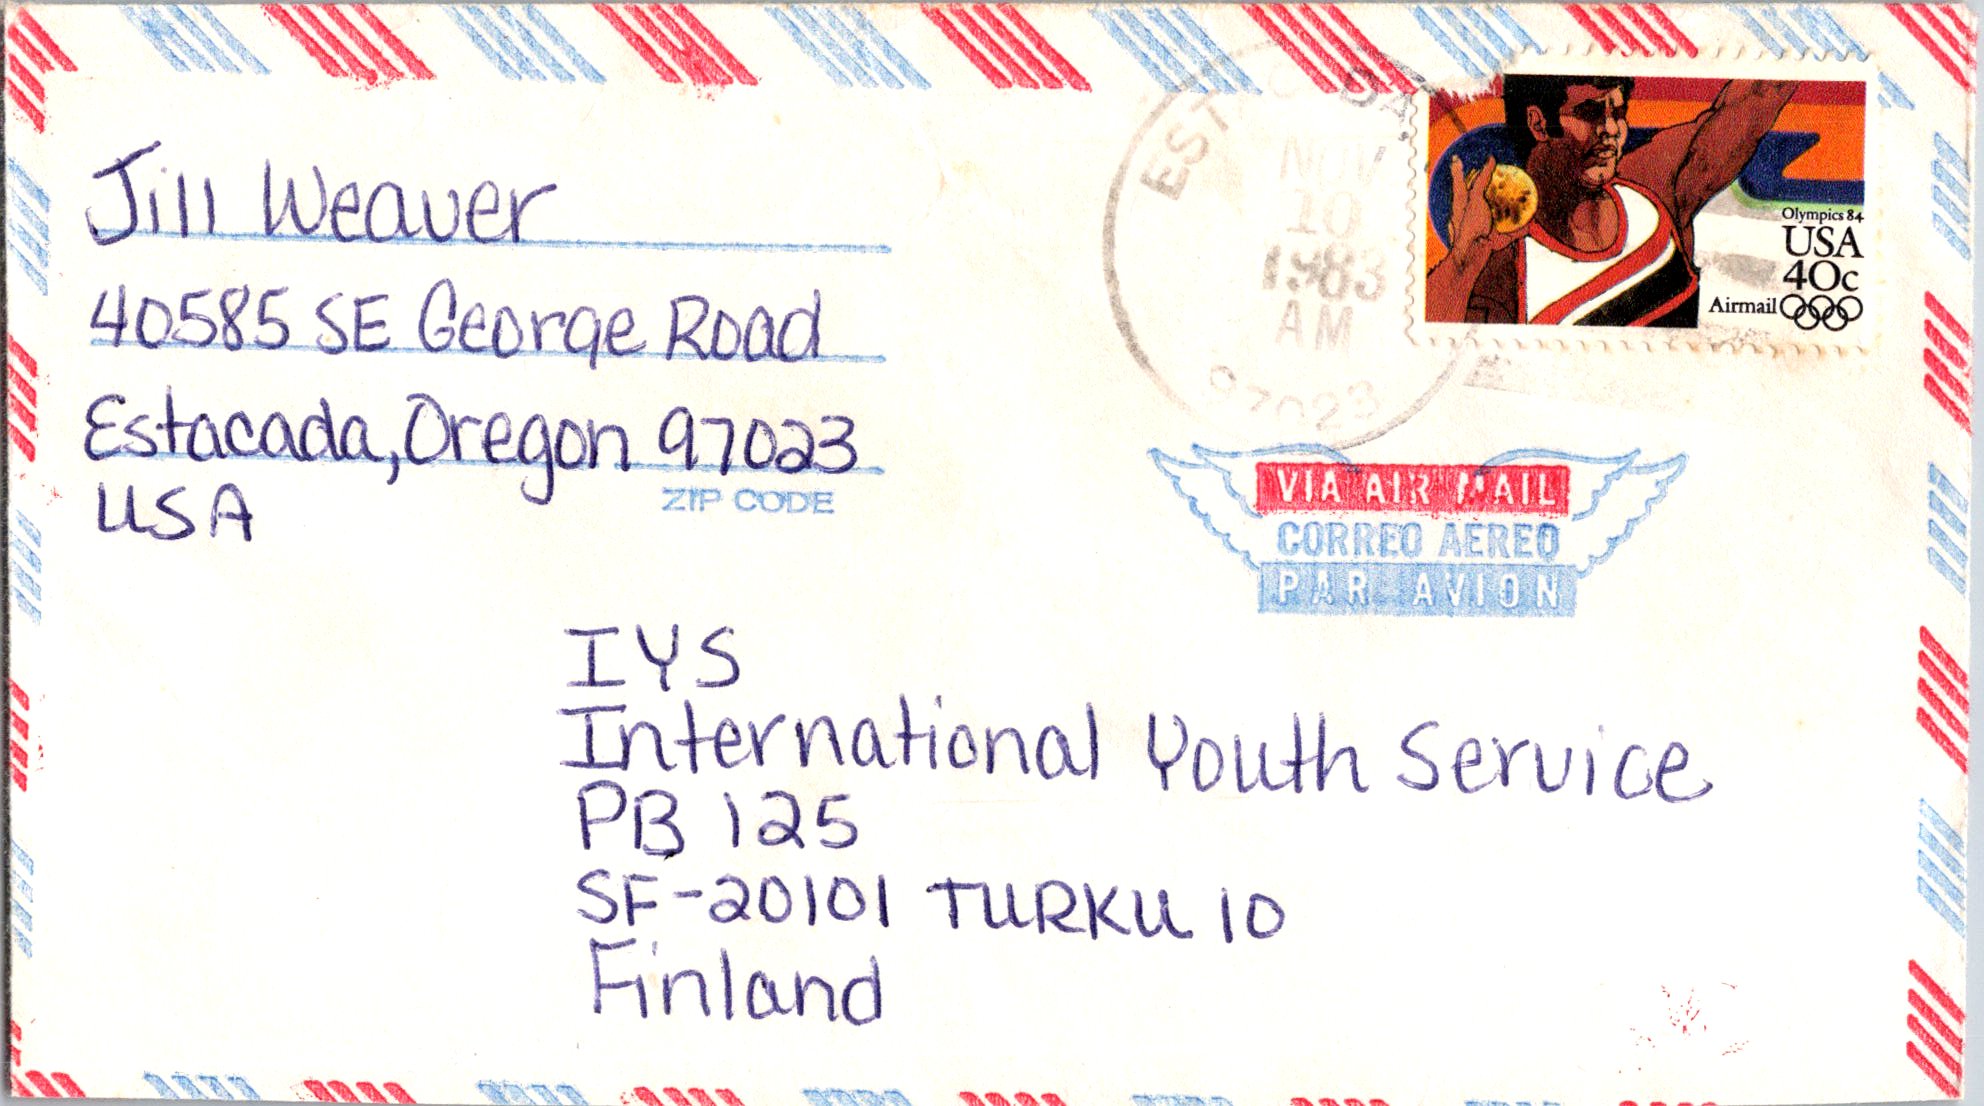 Jill Weaver
40585 SE George Road
Estacada, Oregon 97023
USA
ZIP CODE
NOV
10
1983
AM
97023
Olympics 84
USA
40c
Airmail
VIA AIR MAIL
CORREO AEREO
PAR AVION
IYS
International Youth Service
PB 125
SF-20101 TURKU 10
Finland